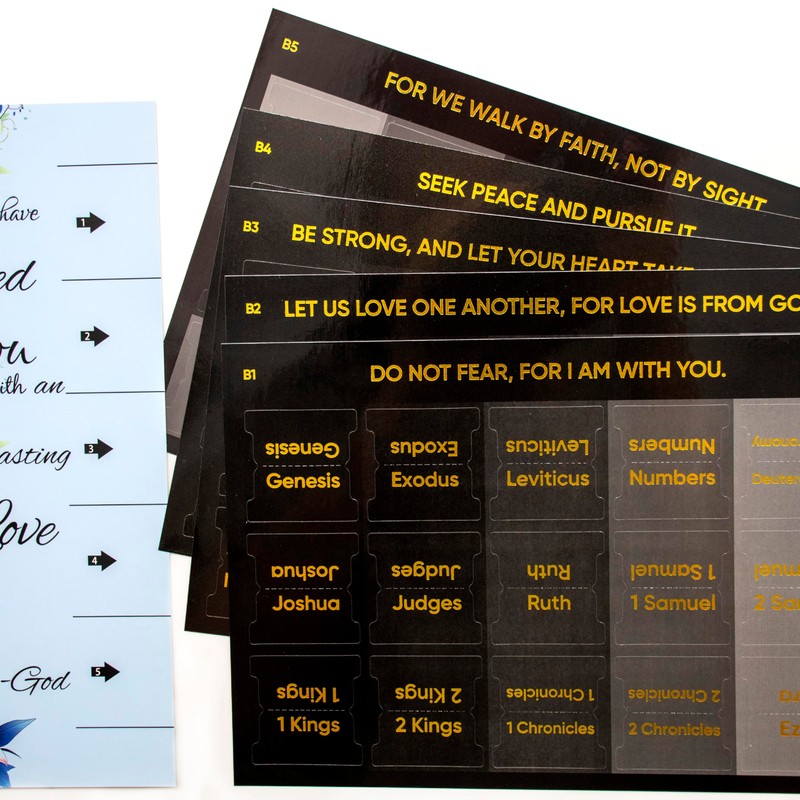 have
1
ed
2
ou
with an
3
asting
Love
4
-God
5
B5
FOR WE WALK BY FAITH, NOT BY SIGHT
B4
SEEK PEACE AND PURSUE IT
B3
BE STRONG, AND LET YOUR HEART TAKE
B2
LET US LOVE ONE ANOTHER, FOR LOVE IS FROM GO
B1
DO NOT FEAR, FOR I AM WITH YOU.
Genesis Exodus Leviticus Numbers onomy
Genesis Exodus Leviticus Numbers Deuter
Joshua Judges Ruth 1 Samuel amuel
Joshua Judges Ruth 1 Samuel 2 Sa
1 Kings 2 Kings 1 Chronicles 2 Chronicles ra
1 Kings 2 Kings 1 Chronicles 2 Chronicles Ez